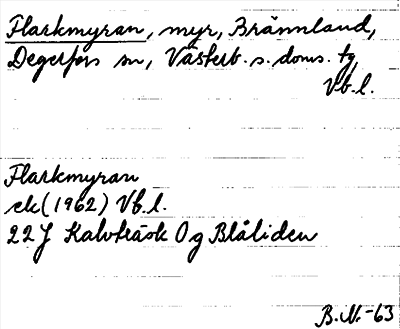 Flarkmyran, myr, Brännland,
Degerfors sn, Västerb. s. doms. tg,
Vb. l.
Flarkmyran
ek (1962) Vb. l.
22 J Kalvträsk 0 g Blåliden
B.N.-63